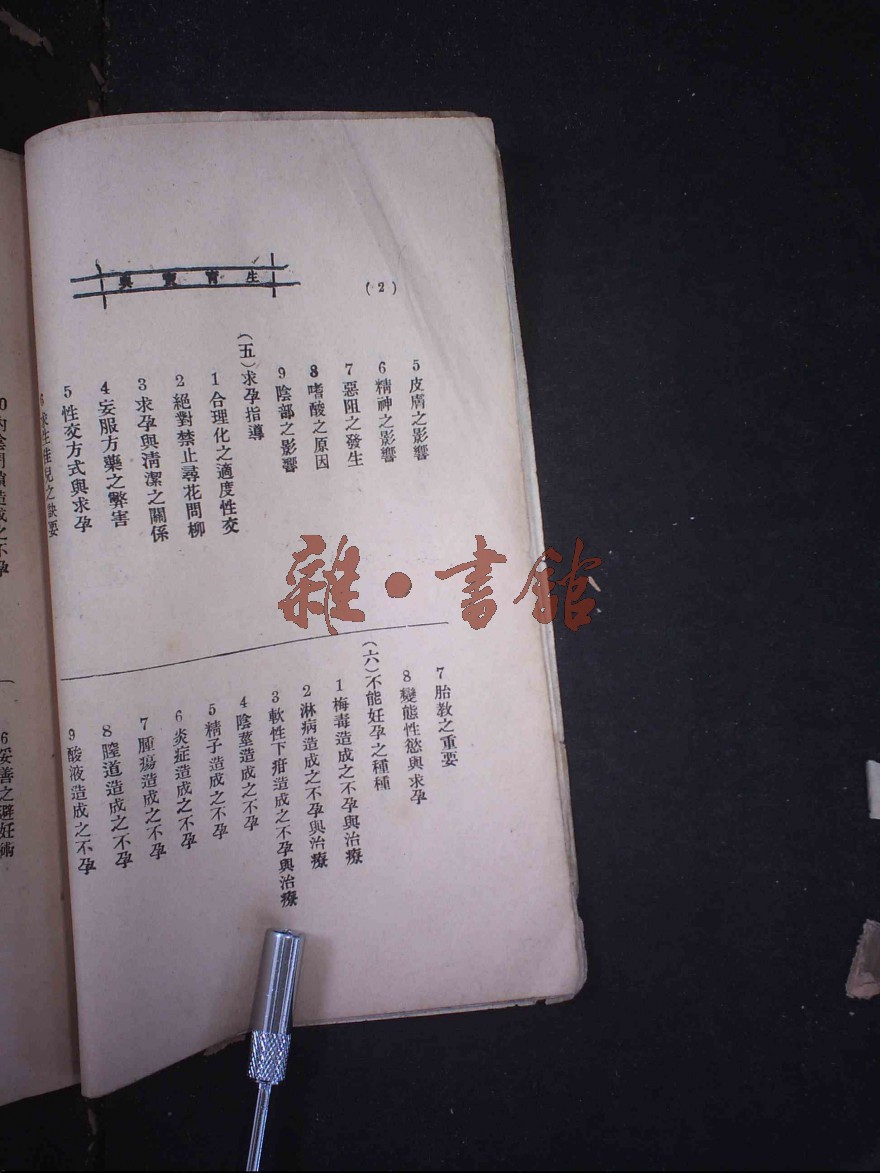 生寶寶與
(2)
5 皮膚之影響
6 精神之影響
7 惡阻之發生
8 嗜酸之原因
9 陰部之影響
(五)求孕指導
1 合理化之適度性交
2 絕對禁止尋花問柳
3 求孕與清潔之關係
4 妄服方藥之弊害
5 性交方式與求孕
6 求生佳兒之訣要
7 胎教之重要
8 變態性慾與求孕
(六)不能妊孕之種種
1 梅毒造成之不孕與治療
2 淋病造成之不孕與治療
3 軟性下疳造成之不孕與治療
4 陰莖造成之不孕
5 精子造成之不孕
6 炎症造成之不孕
7 腫瘍造成之不孕
8 膣道造成之不孕
9 酸液造成之不孕
造成之不孕
6 妥善之避妊術
雜·書館